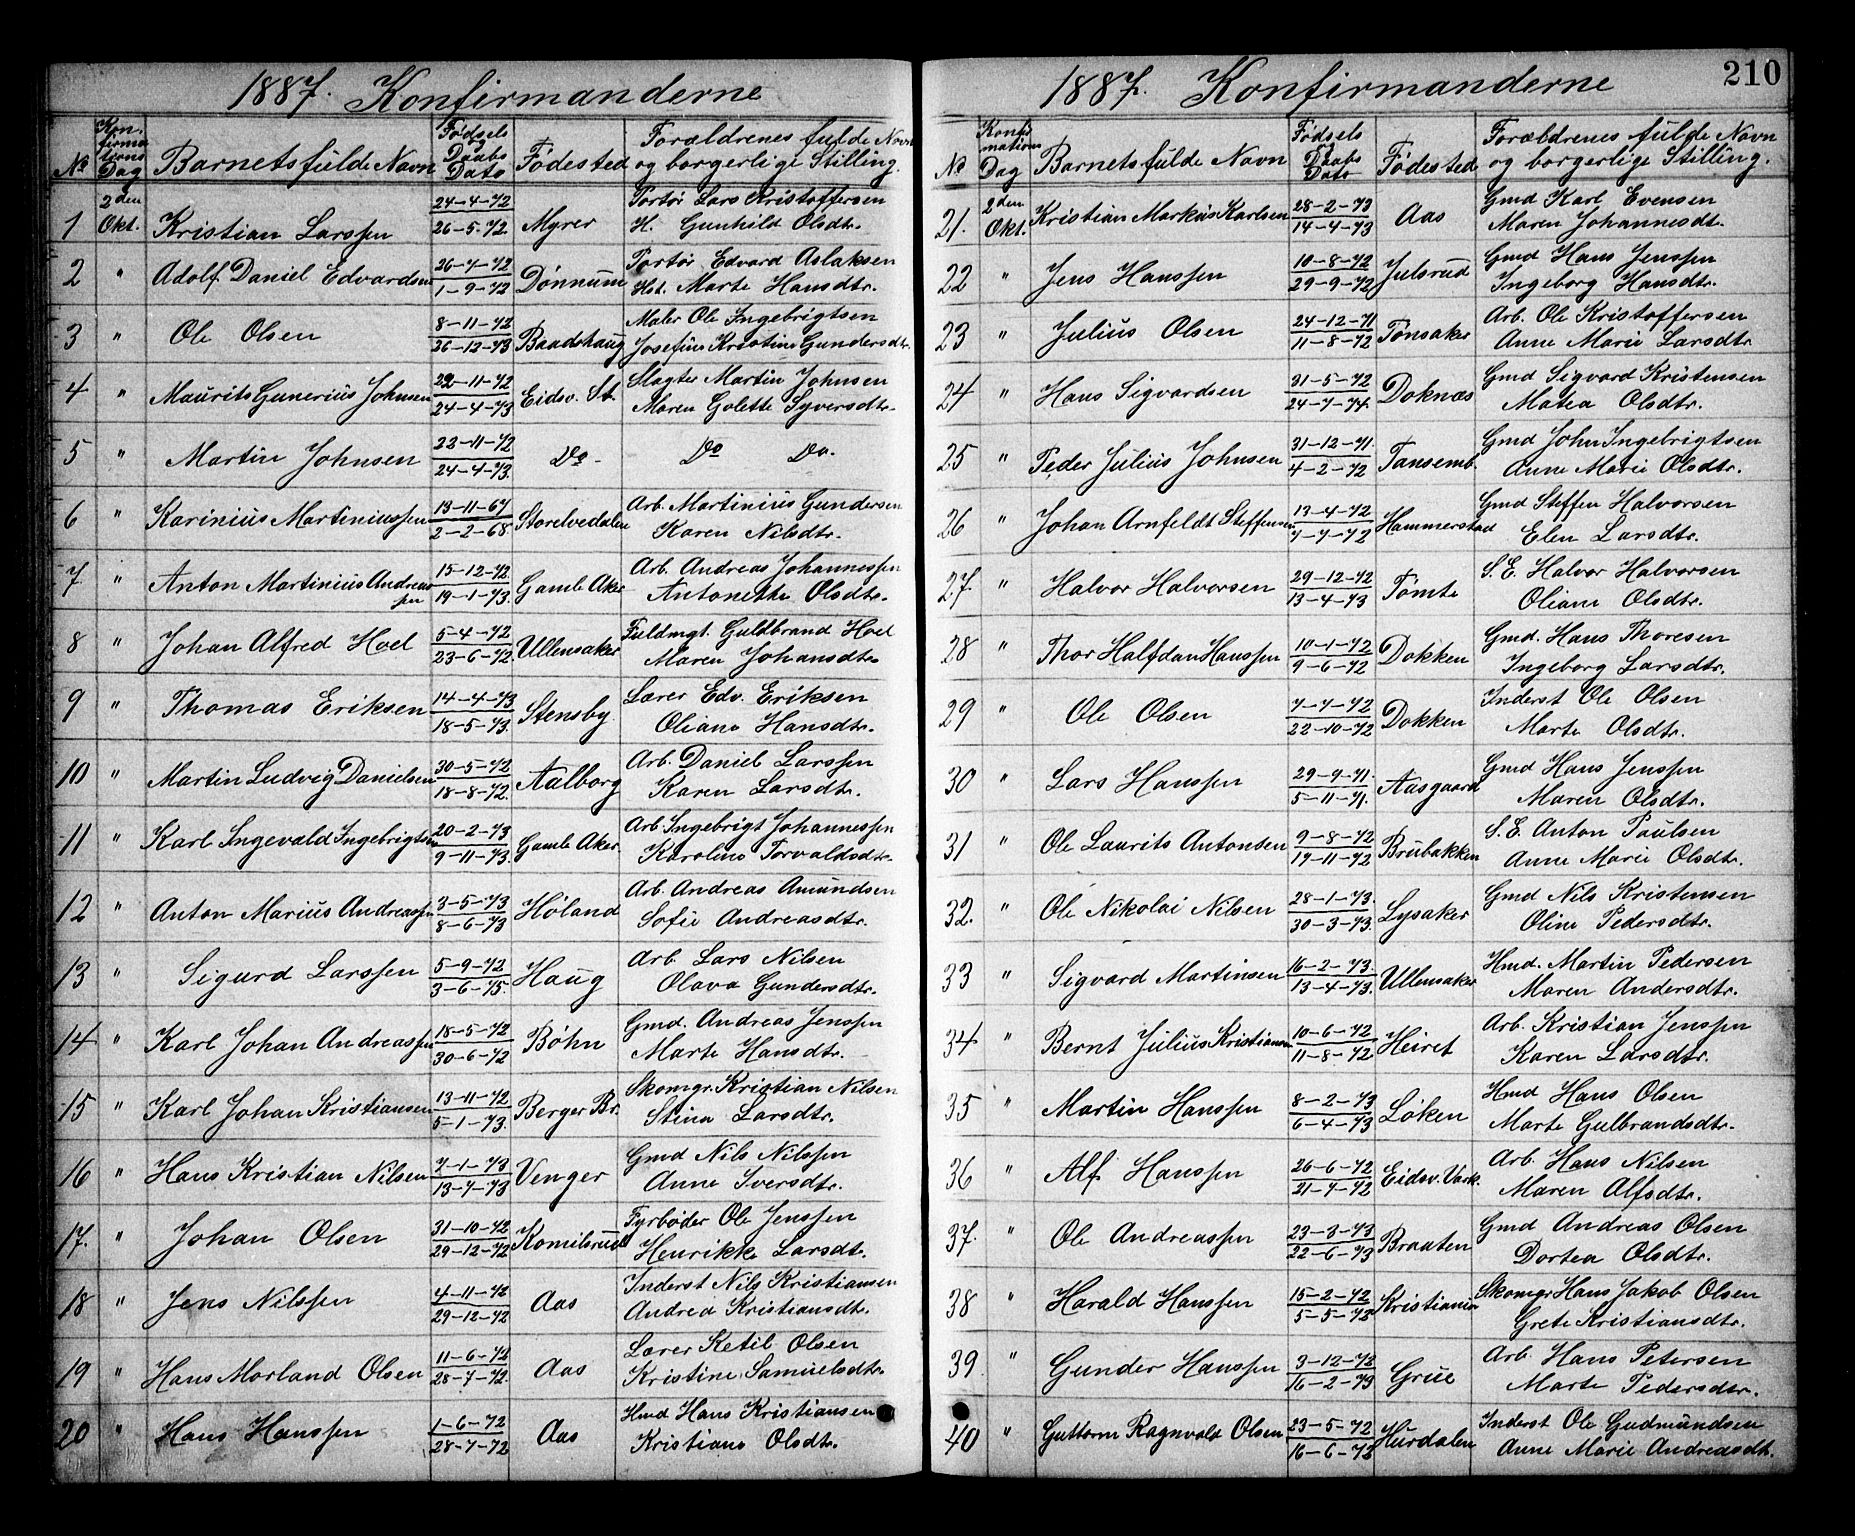 1887. Konfirmanderne
No Konfirmations Dag Barnets fulde Navn Fødsels og Daabs Dato Fødested Forældrenes fulde Navn og borgerlige Stilling.
1 2den Okt. Kristian Larssen 24-4-72 26-5-72 Myrer Portør Lars Kristoffersen
H. Gunhild Olsdtr.
2 " Adolf Daniel Edvardsen 26-7-72 1-9-72 Dønnum Portør Edvard Aslaksen
Hst. Marte Hansdtr.
3 " Ole Olsen 8-11-72 26-12-73 Baadshaug Maler Ole Ingebrigtsen
Josefine Kristine Gundersdtr.
4 " Maurits Gunerius Johnsen 22-11-72 24-4-73 Eidsv. St. Slagter Martin Johnsen
Maren Golette Syversdtr.
5 " Martin Johnsen 22-11-72 24-4-73. Do. Do Do.
6 " Karinius Martiniussen 13-11-67 2-2-68 Storelvedalen Arb. Martinius Gundersen
Karen Nilsdtr.
7 " Anton Martinius Andreassen 15-12-72 19-1-73. Gamle Aker Arb. Andreas Johannessen
Antonette Olsdtr.
8 " Johan Alfred Hoel 5-4-72 23-6-72. Ullensaker Fuldmgt. Guldbrand Hoel
Maren Johansdtr.
9 " Thomas Eriksen 14-4-73 18-5-73. Stensby Lærer Edv. Eriksen
Oliane Hansdtr.
10 " Martin Ludvig Danielsen 30-5-72 18-8-72. Aalborg Arb. Daniel Larssen
Karen Larsdtr.
11 " Karl Ingevald Ingebrigtsen 20-2-73 9-11-73. Gamle Aker Arb. Ingebrigt Johannessen
Karoline Torvaldsdtr.
12 " Anton Marius Andreassen 3-5-73 8-6-73 Høland Arb. Andreas Amundsen
Sofie Andreasdtr.
13 " Sigurd Larssen 5-9-72 3-6-75. Haug Arb. Lars Nilsen
Olava Gundersdtr.
14 " Karl Johan Andreassen 18-5-72 30-6-72 Bøhn Gmd. Andreas Jenssen
Marte Hansdtr.
15 " Karl Johan Kristiansen 13-11-72 5-1-73. Berger Br. Skomgr. Kristian Nilsen
Stina Larsdtr.
16 " Hans Kristian Nilsen 7-1-73 13-7-73 Venger Gmd Nils Nilssen
Anne Iversdtr.
17. " Johan Olsen 31-10-72 29-12-72 Komilsrud Fyrbøder Ole Jenssen
Henrikke Larsdt.
18 " Jens Nilssen 4-11-72 29-12-72 Aas Inderst Nils Kristiansen
Andrea Kristiansdtr.
19 " Hans Morland Olsen 11-6-72 28-7-72. Aas Lærer Ketil Olsen
Kristine Samuelsdtr.
20 " Hans Hanssen 1-6-72 28-7-72 Aas Hmd Hans Kristiansen
Kristiane Olsdtr.
1887. Konfirmanderne 210
No Konfirmations Dag Barnets fulde Navn Fødsels og Daabs Dato Fødested Forældrenes fulde Navn og borgerlige Stilling.
21. 2den Okt. Kristian Markus Karlsen 28-2-73 14-4-73 Aas Gmd Karl Evensen
Maren Johannesdt.
22 " Jens Hanssen 10-8-72 29-9-72 Julsrud Gmd Hans Jenssen
Ingeborg Hansdtr.
23 " Julius Olsen 24-12-71 11-8-72 Tønsaker Arb. Ole Kristoffersen
Anne Marie Larsdtr
24 " Hans Sigvardsen 31-5-72 24-7-74. Doknæs Gmd Sigvard Kristensen
Matea Olsdtr.
25 " Peder Julius Johnsen 31-12-71. 4-2-72 Tansemb. Gmd John Ingebrigtsen
Anne Marie Olsdtr.
26 " Johan Arnfeldt Steffensen 13-4-72 7-7-72 Hammerstad Gmd Steffen Halvorsen
Elen Larsdtr.
27. " Halvor Halvorsen 29-12-72 13-4-73 Tømte S.E. Halvor Halvorsen
Oliane Olsdtr.
28 " Thor Halfdan Hanssen 10-1-72 9-6-72 Dokken Gmd. Hans Thoresen
Ingeborg Larsdtr.
29 " Ole Olsen 7-7-72 22-10-72 Dokken Inderst Ole Olsen
Marte Olsdtr.
30 " Lars Hanssen 29-9-71. 5-11-71. Aasgaard Gmd Hans Jenssen
Maren Olsdtr.
31 " Ole Laurits Antonsen 9-8-72 17-11-72 Brubakken S.E. Anton Paulsen
Anne Marie Olsdtr.
32. " Ole Nikolai Nilsen 28-1-73. 30-3-73. Lysaker Gmd Nils Kristensen
Oline Pedersdtr.
33 " Sigvard Martinsen 16-2-73. 13-4-73. Ullensaker Hmd. Martin Pedersen
Maren Andersdtr.
34 " Bernt Julius Kristiansen 10-6-72 11-8-72 Heiret Arb. Kristian Jenssen
Karen Larsdtr.
35 " Martin Hanssen 8-2-73 6-4-73 Løken Hmd Hans Olsen
Marte Gulbrandsdtr.
36 " Alf Hanssen 26-6-72 21-7-72 Eidsv. Værk. Arb. Hans Nilsen
Maren Alfsdtr.
37. " Ole Andreassen 23-3-73 22-6-73 Braaten Gmd Andreas Olsen
Dortea Olsdtr.
38 " Harald Hanssen 15-2-72 5-5-72 Kristiania Skomgr Hans Jakob Olsen
Grete Kristiansdtr.
39 " Gunder Hanssen 3-12-72 16-2-73 Grue Arb. Hans Petersen
Marte Pedersdtr.
40 " Guttorm Ragnvald Olsen 23-5-72 16-6-72 Hurdalen Inderst Ole Gudmundsen
Anne Marie Andreasdt.